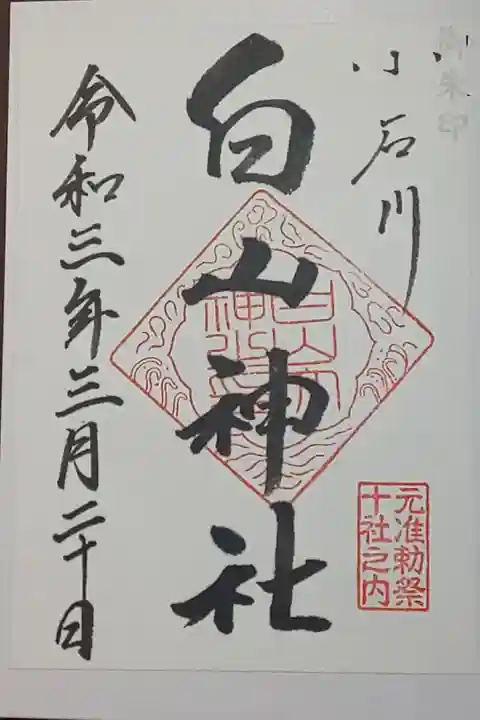 御朱印
小石川
白山神社
元准勅祭
十社之内
令和三年三月二十日